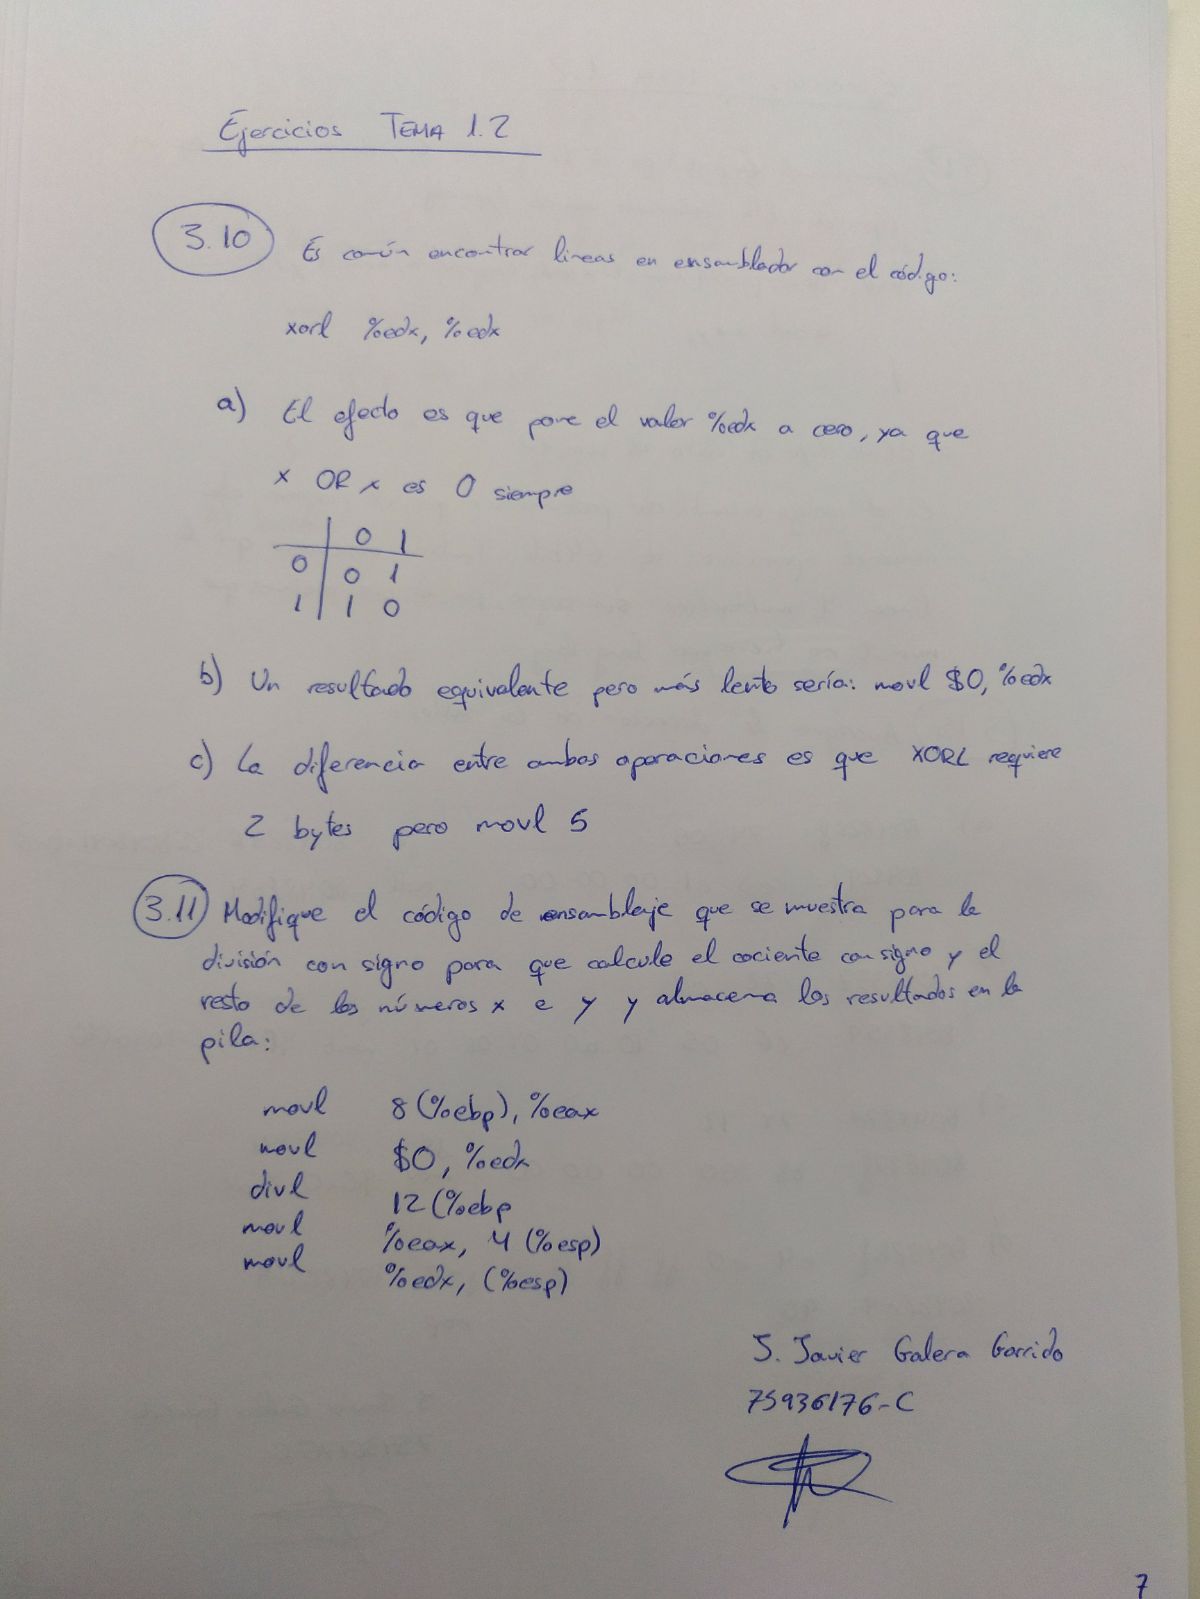 Ejercicios TEMA 1.2
3.10 Es común encontrar lineas en ensamblador con el código:
xorl %edx, %edx
a) El efecto es que pone el valor %edx a cero, ya que
x OR x es 0 siempre
0 1
0 0 1
1 1 0
b) Un resultado equivalente pero más lento sería: movl $0, %edx
c) La diferencia entre ambas operaciones es que XORL requiere
2 bytes pero movl 5
3.11 Modifique el código de ensamblaje que se muestra para la
división con signo para que calcule el cociente con signo y el
resto de los números x e y y almacena los resultados en la
pila:
movl 8(%ebp), %eax
movl $0, %edx
divl 12(%ebp
movl %eax, 4(%esp)
movl %edx, (%esp)
J. Javier Galera Garrido
75936176-C
7